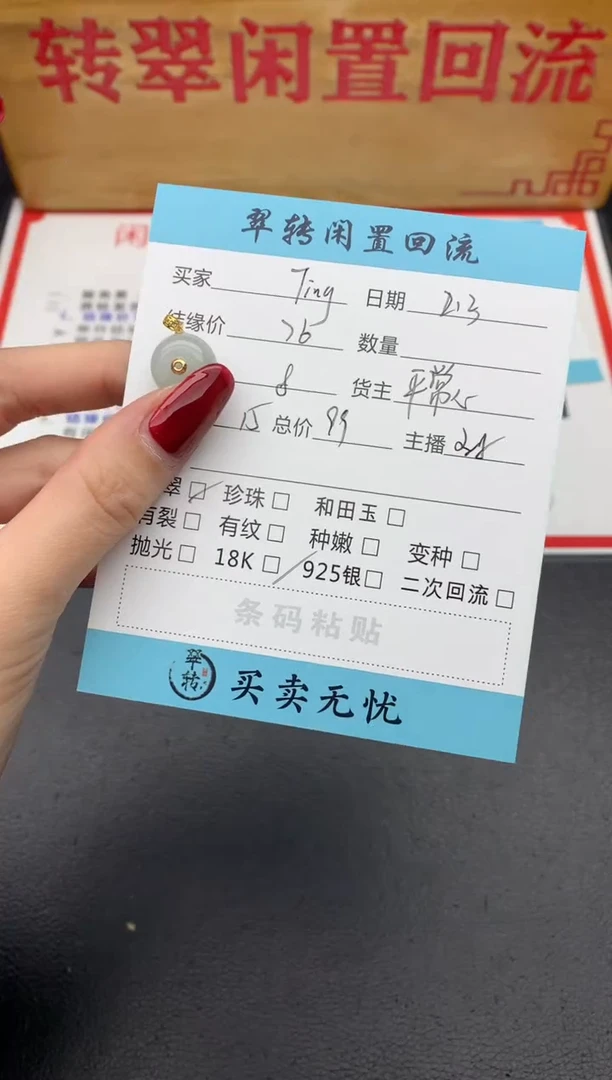 转翠闲置回流
闲
翠转闲置回流
买家 Ting 日期 2.13
结缘价 76 数量
8 货主 平常心
15 总价 99 主播
翠 珍珠 和田玉
有裂 有纹 种嫩 变种
抛光 18K 925银 二次回流
条码粘贴
翠转 买卖无忧